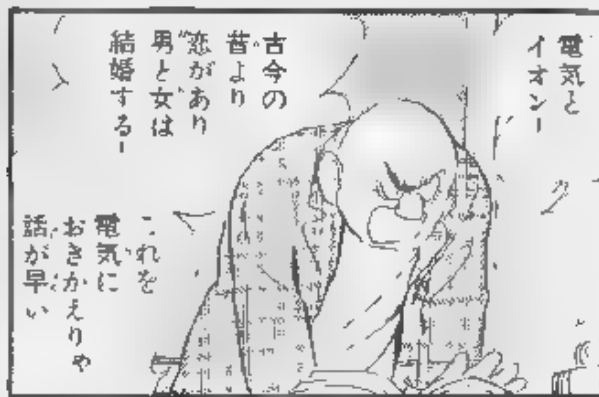 電気と
イオン―
古今の
昔より
恋があり
男と女は
結婚する―
これを
電気に
おきかえりゃ
話が早い